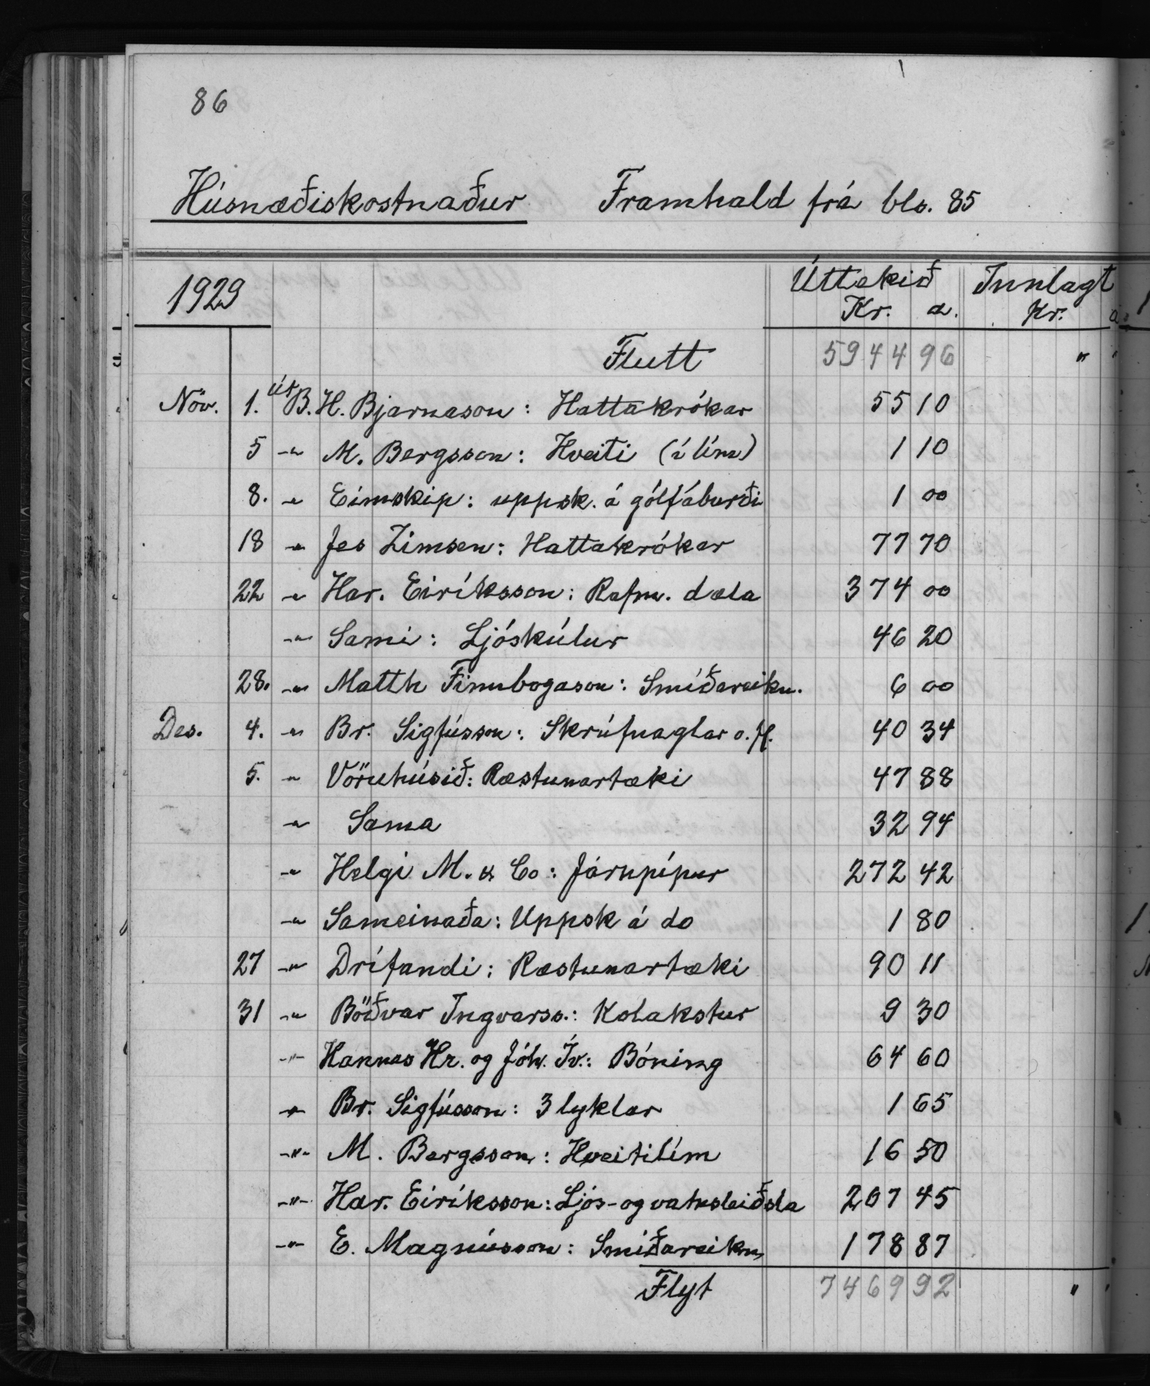 86
Húsnæðiskostnaður Framhald frá bls. 85
1929 Úttekið Innlagt
Kr. a. Kr. a.
Flutt 5944 96 " "
Nóv. 1. Út B. H. Bjarnason: Hattakrókar 55 10
5 -"- M. Bergsson: Hveiti (í lím) 1 10
8. -"- Eimskip: uppsk. á gólfáburði 1 00
18 -"- Jes Zimsen: Hattakrókar 77 70
22 -"- Har. Eiríksson: Rafm. dæla 374 00
-"- Sami: Ljóskúlur 46 20
28. -"- Matth Finnbogason: Smíðareikn. 6 00
Des. 4. -"- Br. Sigfússon: Skrúfnaglar o. fl. 40 34
5. -"- Vöruhúsið: Ræstunartæki 47 88
-"- Sama 32 94
-"- Helgi M. & Co: Járnpípur 272 42
-"- Sameinaða: Uppsk á do 1 80
27 -"- Drífandi: Ræstunartæki 90 11
31 -"- Böðvar Ingvarss.: Kolakstur 9 30
-"- Hannes Hr. og Jóh. Ív.: Bóning 64 60
-"- Br. Sigfússon: 3 lyklar 1 65
-"- M. Bergsson: Hveitilím 16 50
-"- Har. Eiríksson: Ljós- og vatnsleiðsla 207 45
-"- E. Magnússon: Smíðareikn 178 87
Flyt 7469 92 " "